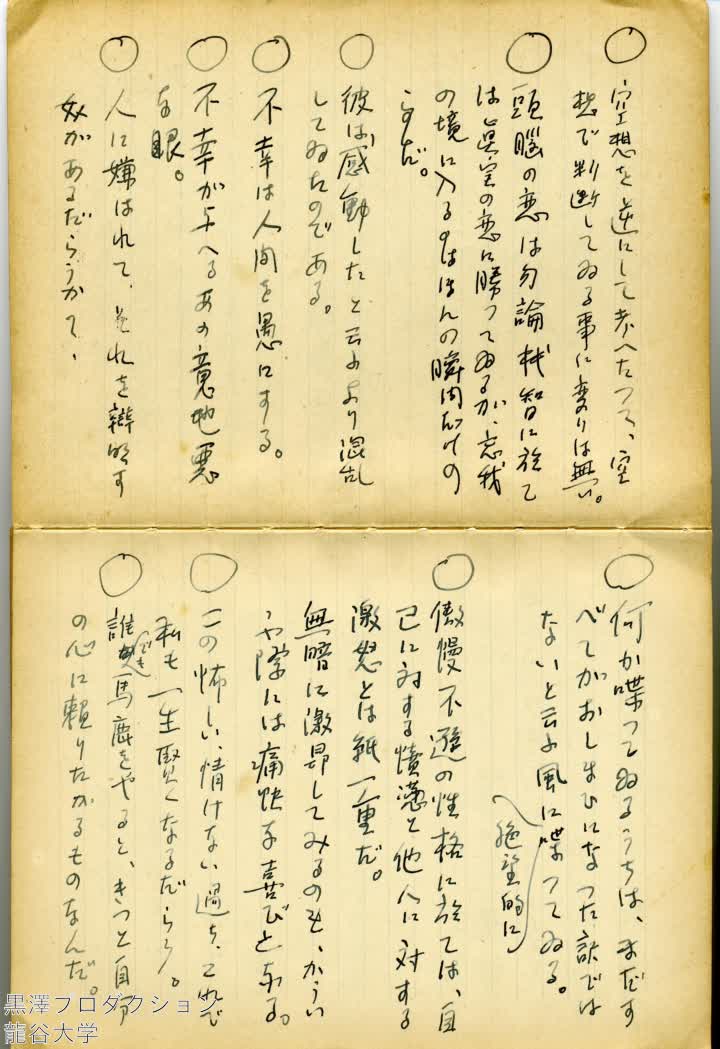 ○ 空想を逆にして考へたつて、空
想で判断してゐる事に変りは無い。
○ 頭脳の恋は勿論才智に於て
は真実の恋に勝つてゐるが、忘我
の境に入るのはほんの瞬間だけの
らすだ。
○ 彼は感動したと云ふより混乱
してゐたのである。
○ 不幸は人間を愚にする。
○ 不幸が与へるあの意地悪
な眼。
○ 人に嫌はれて、それを辯明す
奴があるだらうかて、
○ 何か喋つてゐるうちは、まだす
べてがおしまひになつた訳では
ないと云ふ風に喋つてゐる。
絶望的に
○ 傲慢不遜の性格に於ては、自
己に対する憤懣と他人に対する
激怒とは紙一重だ。
無暗に激昂してみるのも、かうい
ふ際には痛快な喜びとなる。
○ この怖しい、情けない過ち、これで
私も一生賢くなるだらう。
○ 誰でも馬鹿をやると、きつと自分
の心に頼りたがるものなんだ。
黒澤プロダクション
龍谷大学